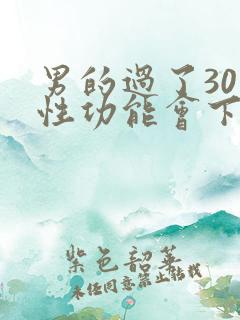 男的過了30
性功能會下
紫色韶華
未經同意禁止轉載